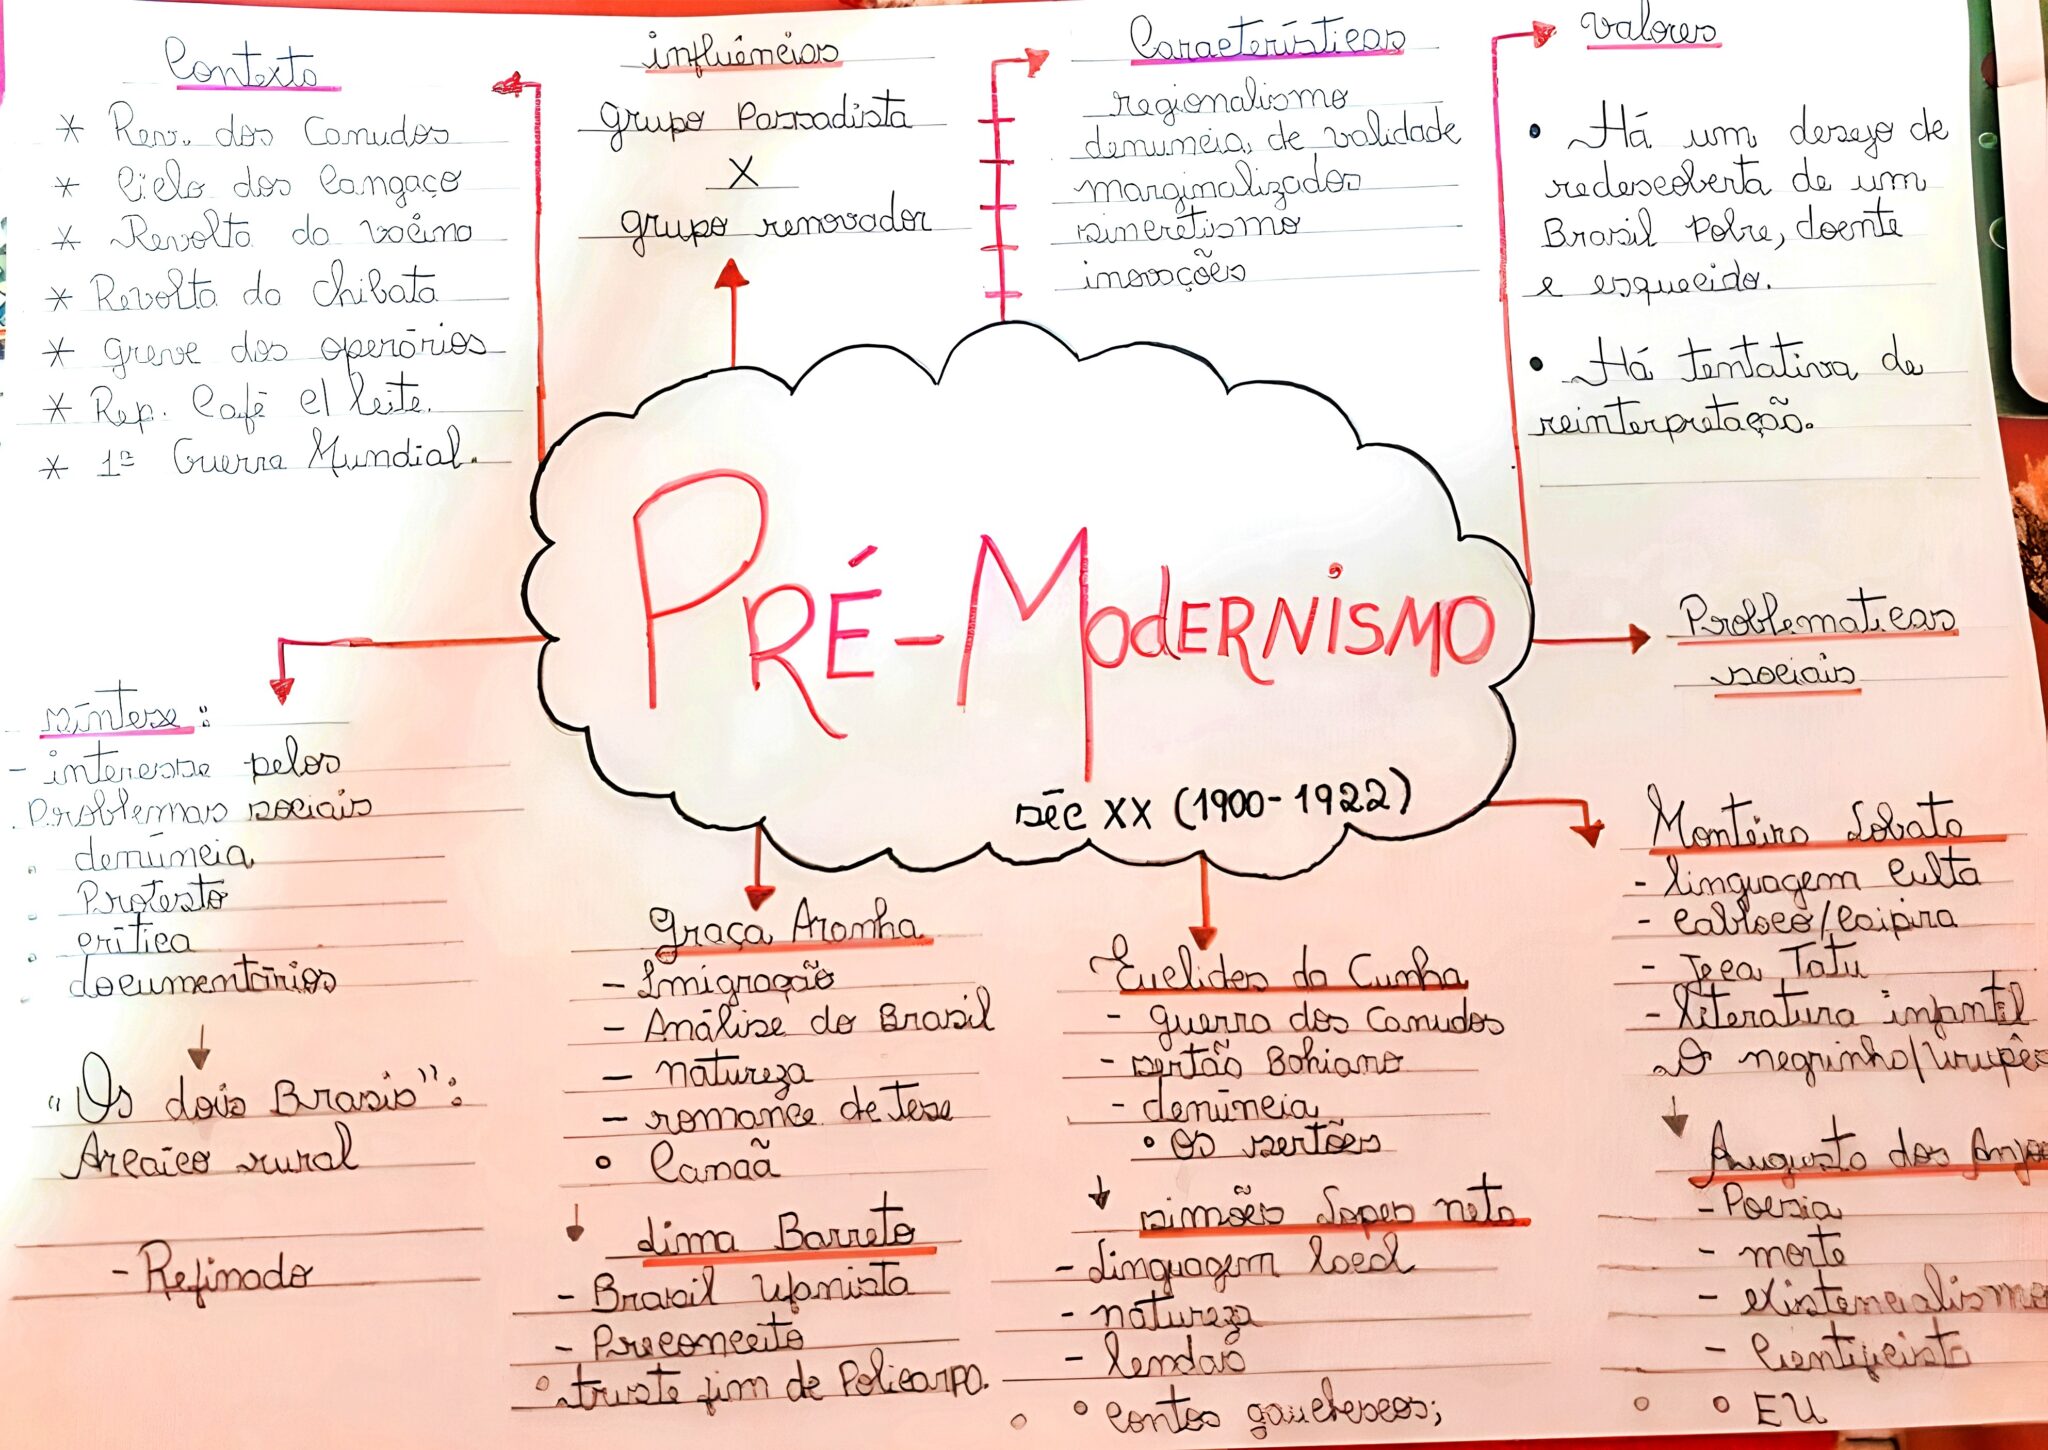 Contexto
* Rev. dos Canudos
* Ciclo dos Cangaço
* Revolta da vacina
* Revolta da Chibata
* greve dos operários
* Rep. Café c/ leite.
* 1ª Guerra Mundial.
influências
grupo Passadista
X
grupo renovador
Características
regionalismo
denuncia, de validade
marginalizados
sincretismo
inovações
valores
• Há um desejo de
redescoberta de um
Brasil Pobre, doente
e esquecido.
• Há tentativa de
reinterpretação.
PRÉ-MODERNISMO
séc XX (1900-1922)
Problematicas
sociais
síntese:
- interesse pelos
Problemas sociais
denúncia
Protesto
crítica
documentários
"Os dois Brasis":
Arcaico rural
- Refinado
Graça Aranha
- Imigração
- Análise do Brasil
- natureza
- romance de Tese
• Canaã
Lima Barreto
- Brasil Ufanista
- Preconceito
• triste fim de Policarpo.
Euclides da Cunha
- guerra dos Canudos
- sertão Bahiano
- denúncia
• Os sertões
simões Lopes neto
- Linguagem local
- natureza
- lendas
• Contos gauchescos;
Monteiro Lobato
- linguagem Culta
- Cabloco/Caipira
- Jeca Tatu
- literatura infantil
O negrinho/Urupês
Augusto dos Anjos
- Poesia
- morte
- existencialismo
- Cientificista
• EU